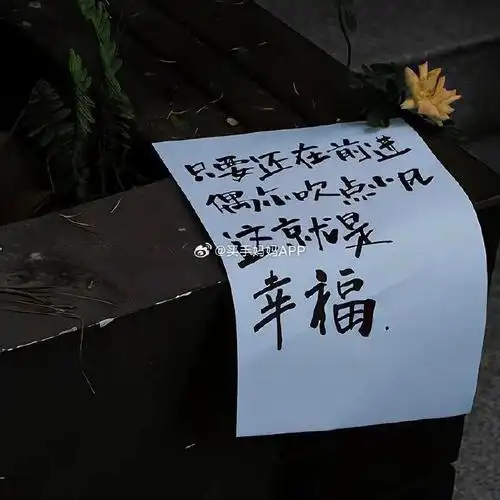 只要还在前进
偶尔吹点小风
这就是
幸福.
@买手妈妈APP